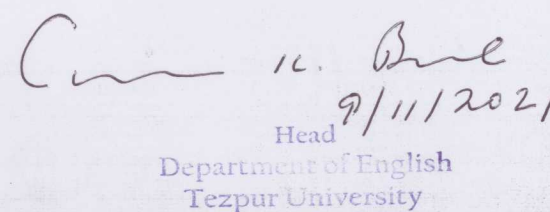 K. 
9/11/2021
Head
Department of English
Tezpur University